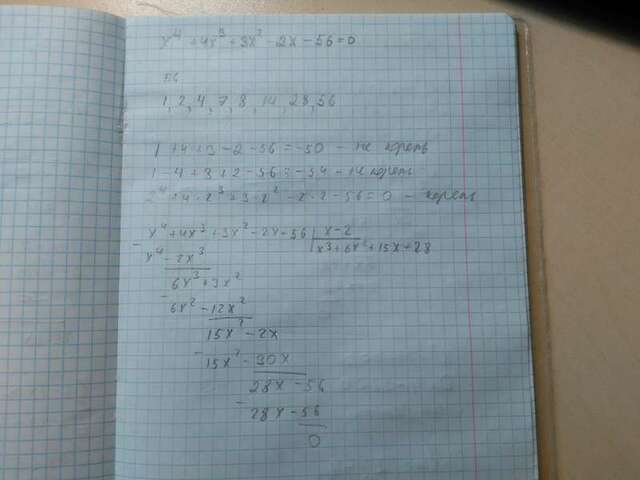 x⁴ + 4x³ + 3x² - 2x - 56 = 0
56
1, 2, 4, 7, 8, 14, 28, 56
1 + 4 + 3 - 2 - 56 = -50 - не корень
1 - 4 + 3 + 2 - 56 = -54 - не корень
2⁴ + 4 · 2³ + 3 · 2² - 2 · 2 - 56 = 0 - корень
x⁴ + 4x³ + 3x² - 2x - 56 | x - 2
- x⁴ - 2x³ x³ + 6x² + 15x + 28
6x³ + 3x²
- 6x² - 12x²
15x² - 2x
- 15x² - 30x
28x - 56
- 28x - 56
0